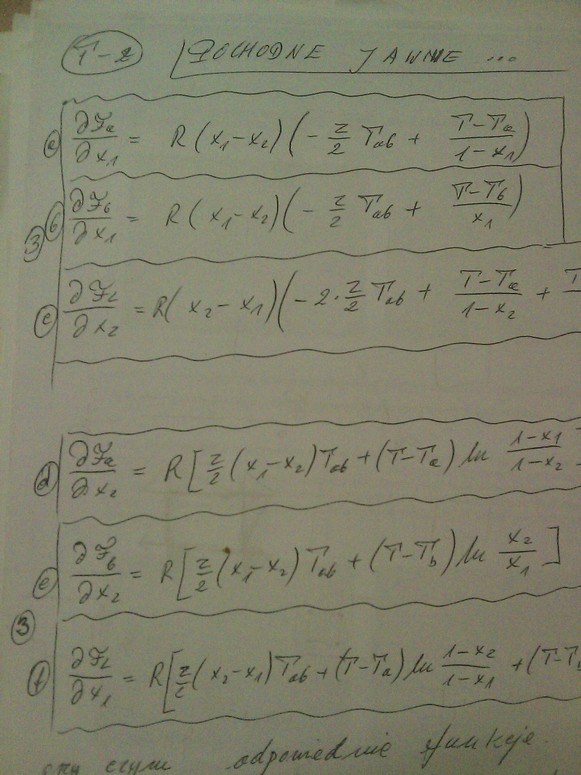 T-2 POCHODNE JAWNE ...
a ∂Fa/∂x1 = R(x1-x2)(-z/2 Tab + T-Ta/1-x1)
3 b ∂Fb/∂x1 = R(x1-x2)(-z/2 Tab + T-Tb/x1)
c ∂FL/∂x2 = R(x2-x1)(-2·z/2 Tab + T-Ta/1-x2 + T
d ∂Fa/∂x2 = R[z/2(x1-x2)Tab+(T-Ta)ln 1-x1/1-x2
e ∂Fb/∂x2 = R[z/2(x1-x2)Tab+(T-Tb)ln x2/x1]
3
f ∂FL/∂x1 = R[z/2(x2-x1)Tab+(T-Ta)ln 1-x2/1-x1 +(T-Tb
czym odpowiednie funkcje